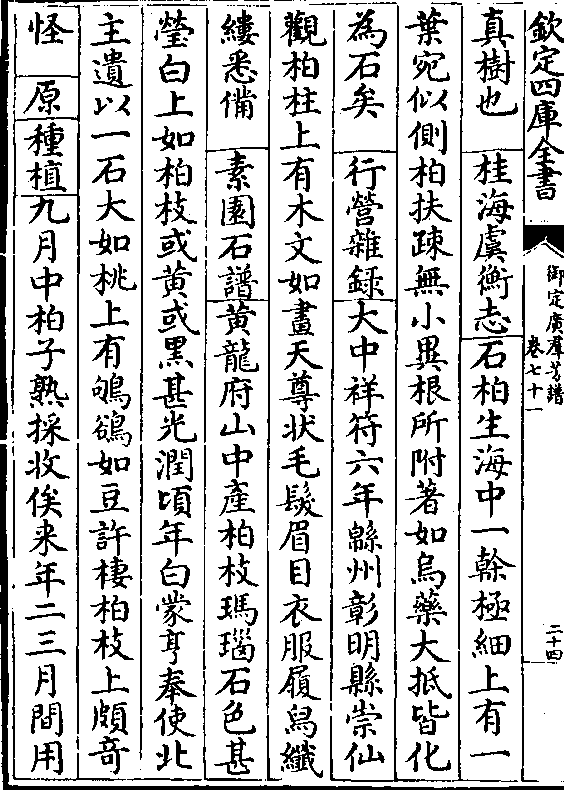 欽定四庫全書
御定廣羣芳譜
卷七十一
二十四
真樹也 桂海虞衡志 石柏生海中一榦極細上有一
葉宛似側柏扶疎無小異根所附著如烏藥大抵皆化
為石矣 行營雜録 大中祥符六年緜州彰明縣崇仙
觀柏柱上有木文如畫天尊状毛髮眉目衣服履舄纖
縷悉備 素園石譜 黄龍府山中產柏枝瑪瑙石色甚
瑩白上如柏枝或黄或黒甚光潤頃年白蒙亨奉使北
主遺以一石大如桃上有鴝鵒如豆許棲柏枝上頗竒
怪 原 種植 九月中柏子熟採收俟来年二三月間用